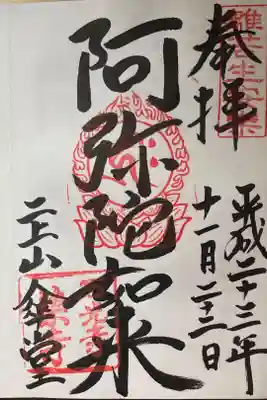 奉拝
平成二十三年
十一月二十三日
阿弥陀如来
二上山傘堂